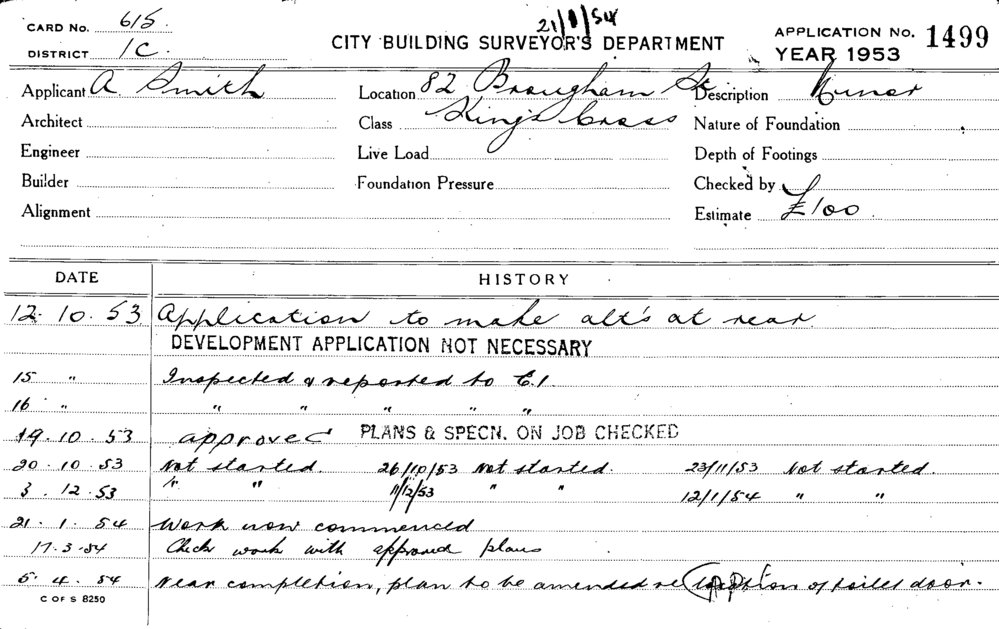 21/1/54
CARD No. 615
DISTRICT 1C.
CITY BUILDING SURVEYOR'S DEPARTMENT
APPLICATION No. 1499
YEAR 1953
Applicant A Smith
Location 82 Brougham St
Description Minor
Architect
Class Kings Cross
Nature of Foundation
Engineer
Live Load
Depth of Footings
Builder
Foundation Pressure
Checked by
Alignment
Estimate £100
DATE HISTORY
12.10.53 Application to make alt's at rear
DEVELOPMENT APPLICATION NOT NECESSARY
15 " Inspected & reported to E.1.
16 " " " " " "
19.10.53 approved PLANS & SPECN. ON JOB CHECKED
20.10.53 Not started. 26/10/53 Not started. 23/11/53 Not started.
3.12.53 " " 11/12/53 " " 12/1/54 " "
21.1.54 Work now commenced
17.3.54 Check work with approved plans
5.4.54 Near completion, plan to be amended re location of toilet door.
C OF S 8250